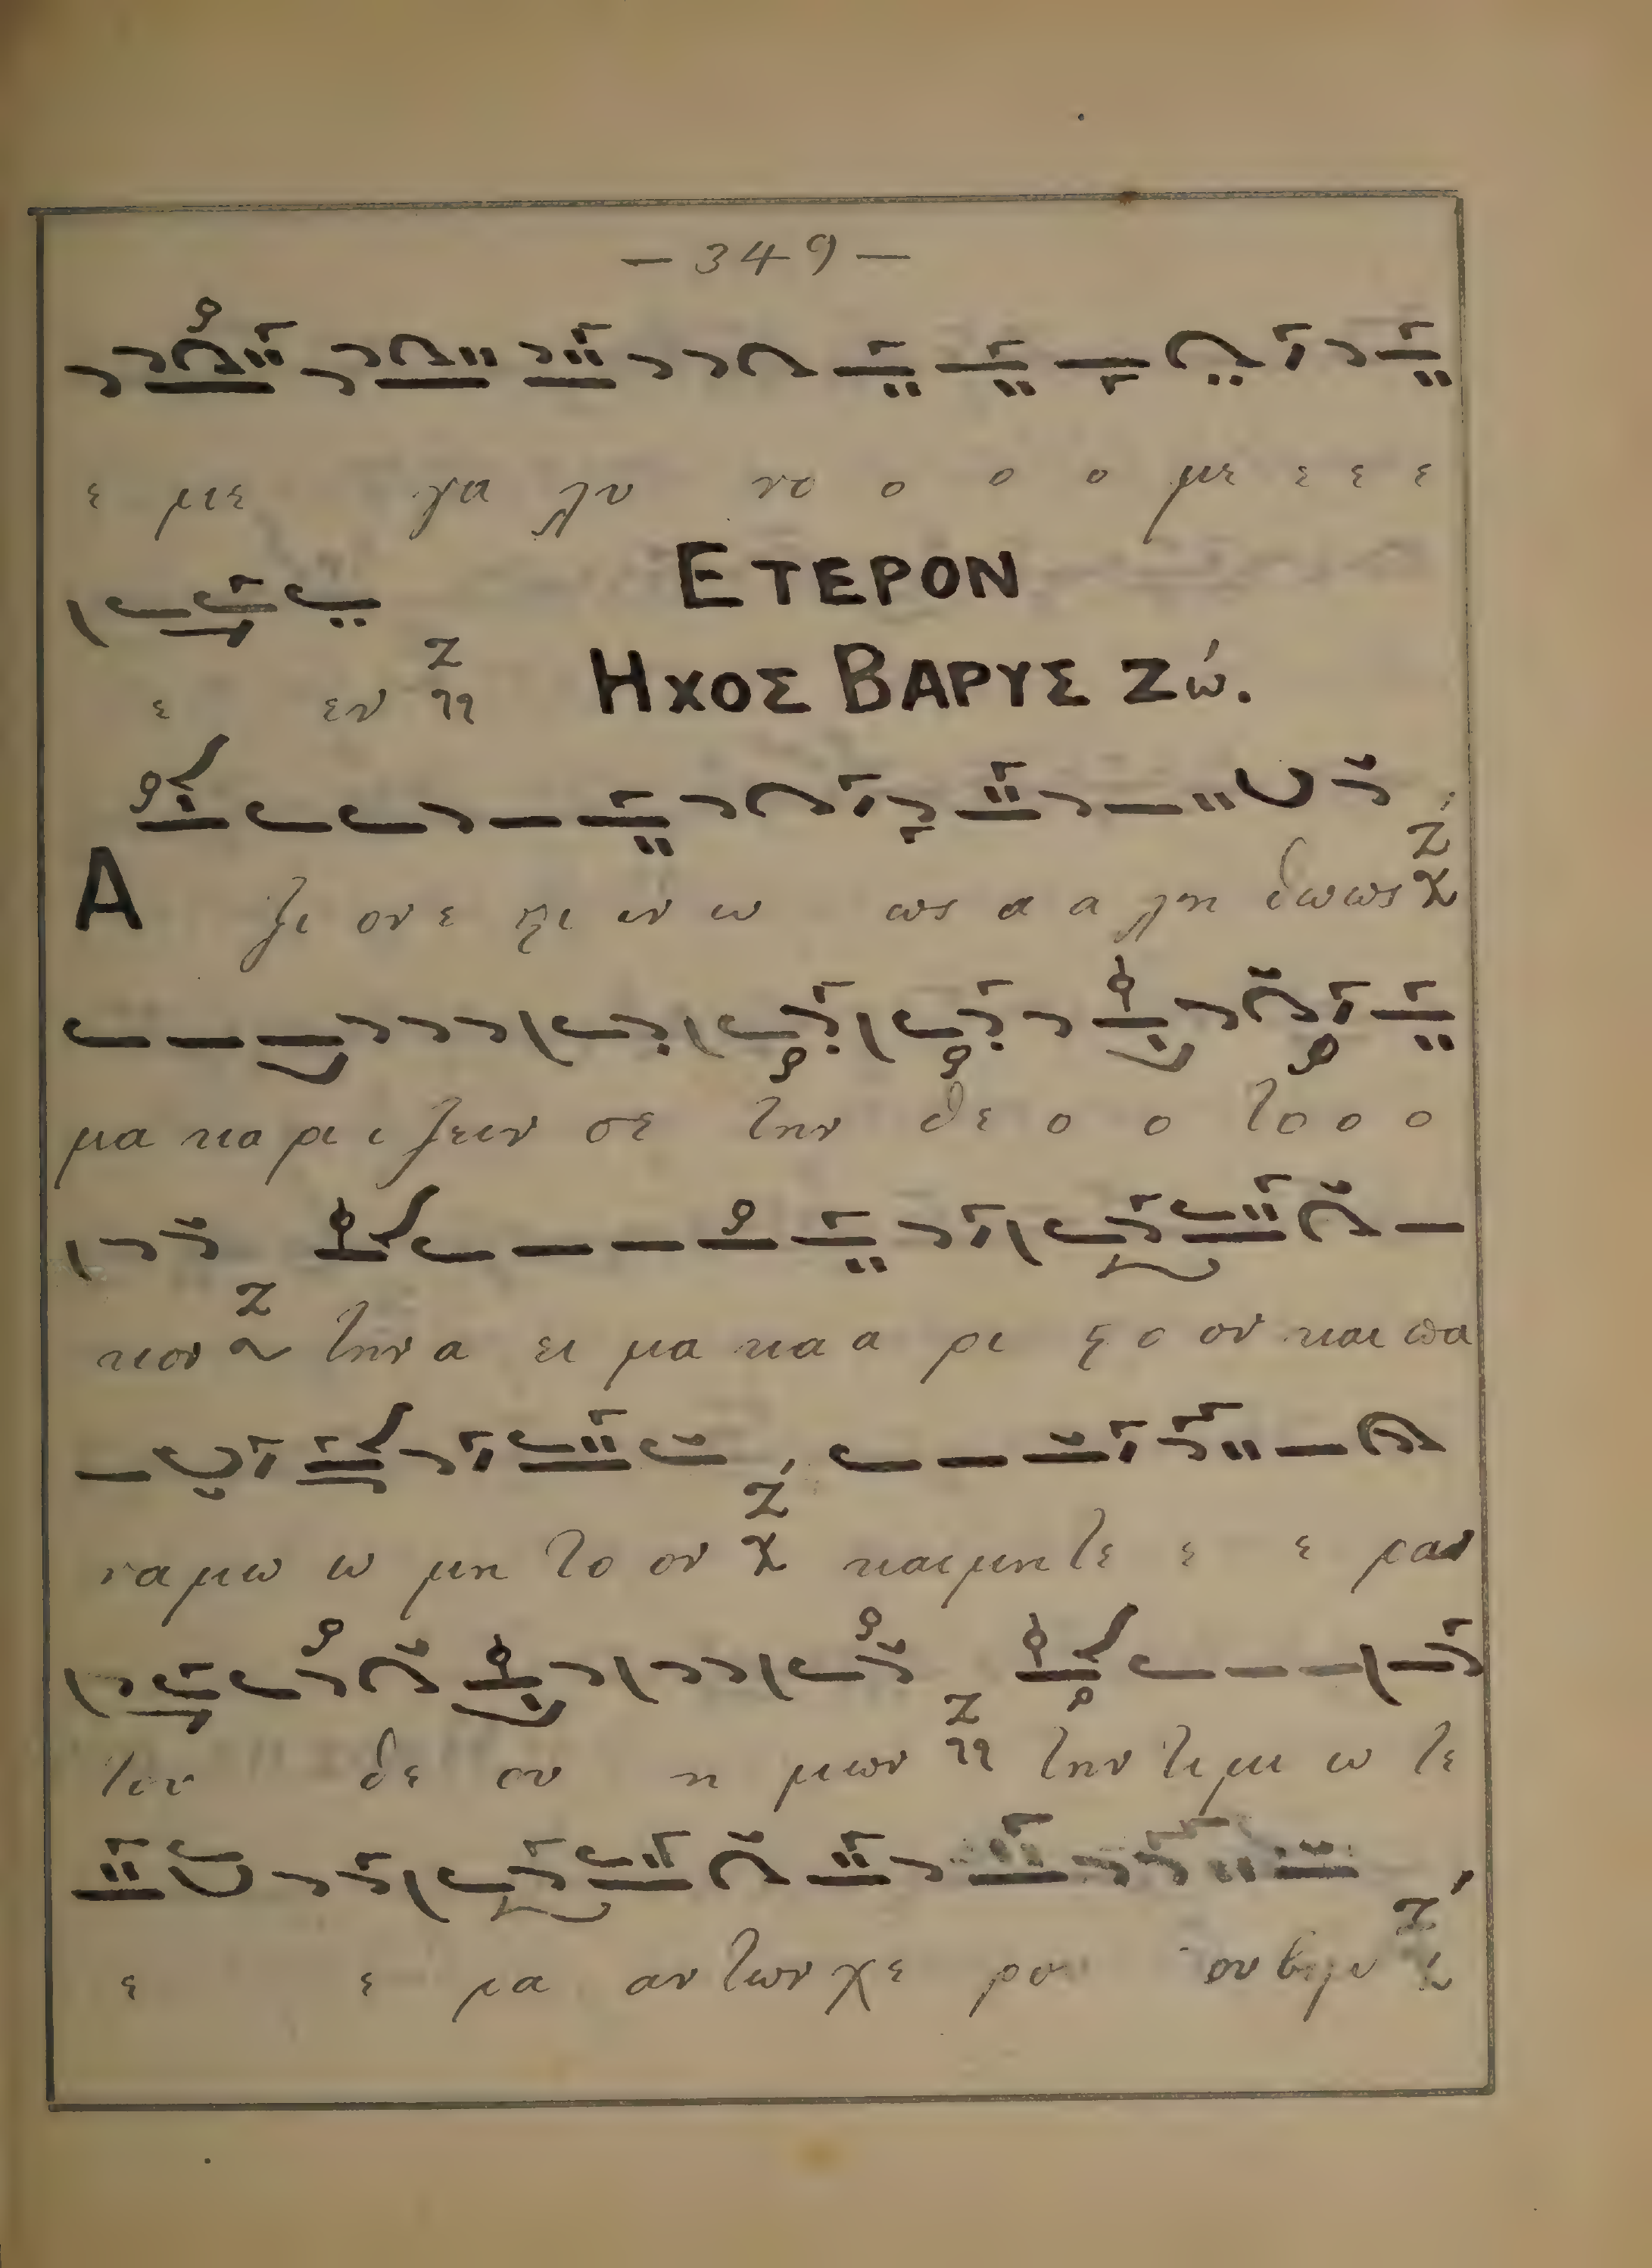 — 349 —
ε με γα λυ νο ο ο ο με ε ε ε
ΕΤΕΡΟΝ
ε εν Ζ
ΗΧΟΣ ΒΑΡΥΣ Ζώ.
Α ξι ον ε ςι ιν ω ως α α λη θωως Ζ
μα κα ρι ι ζειν σε την θε ο ο το ο ο
κον Ζ την α ει μα κα α ρι ς ο ον και πα
να μω ω μη το ον Ζ και μη τε ε ε ραν
του θε ου η μων Ζ την τι μι ω τε
ε ε ρα αν των χε ρου ου βιμ Ζ